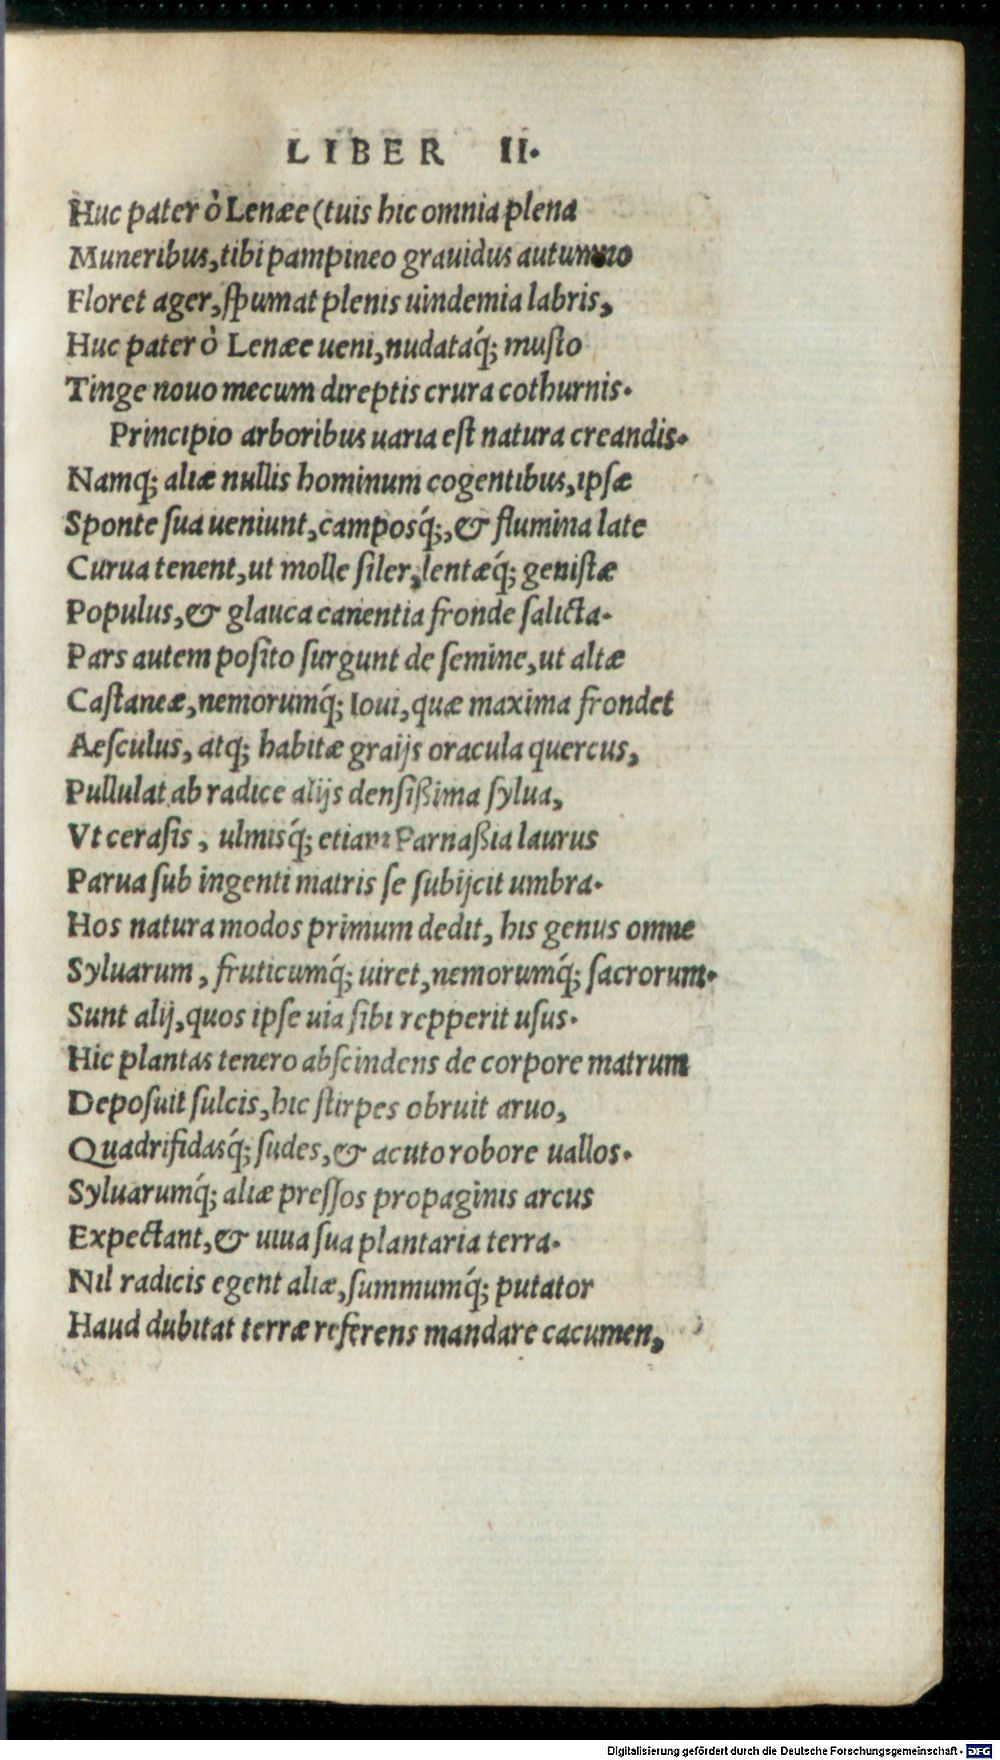 LIBER II.
Huc pater ò Lenæe (tuis hic omnia plena
Muneribus, tibi pampineo grauidus autumno
Floret ager, ſpumat plenis uindemia labris,
Huc pater ò Lenæe ueni, nudataq́; muſto
Tinge nouo mecum direptis crura cothurnis.
Principio arboribus uaria eſt natura creandis.
Namq; aliæ nullis hominum cogentibus, ipſæ
Sponte ſua ueniunt, camposq́;, & flumina late
Curua tenent, ut molle ſiler, lentæq́; geniſtæ
Populus, & glauca canentia fronde ſalicta.
Pars autem poſito ſurgunt de ſemine, ut altæ
Caſtaneæ, nemorumq́; Ioui, quæ maxima frondet
Aeſculus, atq; habitæ graijs oracula quercus,
Pullulat ab radice alijs denſißima ſylua,
Vt ceraſis, ulmisq́; etiam Parnaßia laurus
Parua ſub ingenti matris ſe ſubijcit umbra.
Hos natura modos primum dedit, his genus omne
Syluarum, fruticumq́; uiret, nemorumq́; ſacrorum.
Sunt alij, quos ipſe uia ſibi repperit uſus.
Hic plantas tenero abſcindens de corpore matrum
Depoſuit ſulcis, hic ſtirpes obruit aruo,
Quadrifidasq́; ſudes, & acuto robore uallos.
Syluarumq́; aliæ preſſos propaginis arcus
Expectant, & uiua ſua plantaria terra.
Nil radicis egent aliæ, ſummumq́; putator
Haud dubitat terræ referens mandare cacumen,
Digitalisierung gefördert durch die Deutsche Forschungsgemeinschaft - DFG